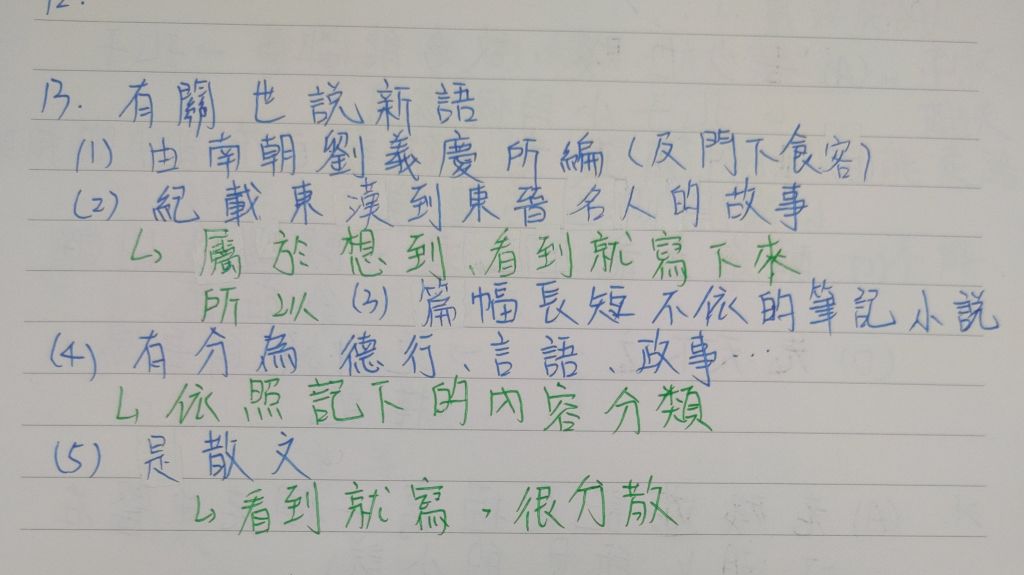 12.
13. 有關世說新語
(1) 由南朝劉義慶所編(及門下食客)
(2) 紀載東漢到東晉名人的故事
↳ 屬於想到、看到就寫下來
所以 (3) 篇幅長短不依的筆記小說
(4) 有分為德行、言語、政事…
↳ 依照記下的內容分類
(5) 是散文
↳ 看到就寫,很分散